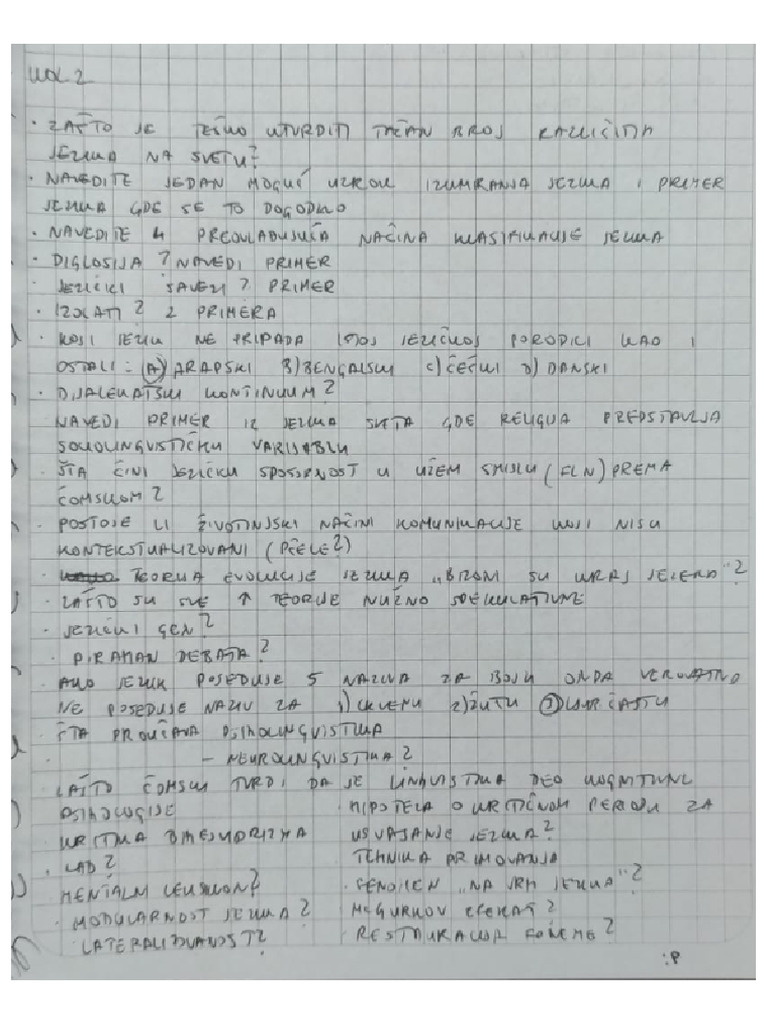 KOL 2
· ZAŠTO JE TEŠKO UTVRDITI TAČAN BROJ RAZLIČITIH
JEZIKA NA SVETU?
· NAVEDITE JEDAN MOGUĆ UZROK IZUMIRANJA JEZIKA I PRIMER
JEZIKA GDE SE TO DOGODILO
· NAVEDITE 4 PREOVLAĐUJUĆA NAČINA KLASIFIKACIJE JEZIKA
· DIGLOSIJA? NAVEDI PRIMER
· JEZIČKI SAVEZI? PRIMER
· IZOLATI? 2 PRIMERA
· KOJI JEZIK NE PRIPADA ISTOJ JEZIČKOJ PORODICI KAO I
OSTALI: (A) ARAPSKI B) BENGALSKI C) ČEŠKI D) DANSKI
· DIJALEKATSKI KONTINUUM?
NAVEDI PRIMER IZ JEZIKA SVETA GDE RELIGIJA PREDSTAVLJA
SOCIOLINGVISTIČKU VARIJABLU
· ŠTA ČINI JEZIČKU SPOSOBNOST U UŽEM SMISLU (FLN) PREMA
ČOMSKOM?
· POSTOJE LI ŽIVOTINJSKI NAČINI KOMUNIKACIJE KOJI NISU
KONTEKSTUALIZOVANI (PČELE?)
· TEORIJA EVOLUCIJE JEZIKA „BIZONI SU KRAJ JEZERA"?
· ZAŠTO SU SVE ↑ TEORIJE NUŽNO SPEKULATIVNE
· JEZIČKI GEN?
· PIRAHAN DEBATA?
· AKO JEZIK POSEDUJE 5 NAZIVA ZA BOJU ONDA VEROVATNO
NE POSEDUJE NAZIV ZA 1) CRVENU 2) ŽUTU (3) LJUBIČASTU
· ŠTA PROUČAVA PSIHOLINGVISTIKA
· – NEUROLINGVISTIKA?
ZAŠTO ČOMSKI TVRDI DA JE LINGVISTIKA DEO KOGNITIVNE
PSIHOLOGIJE
KRITIKA BIHEJVIORIZMA
· LAD?
MENTALNI LEKSIKON?
· MODULARNOST JEZIKA?
· LATERALIZOVANOST?
· HIPOTEZA O KRITIČNOM PERIODU ZA
USVAJANJE JEZIKA?
TEHNIKA PRIMOVANJA
· FENOMEN „NA VRH JEZIKA"?
MEGURKOV EFEKAT?
· RESTAURACIJA FONEME?
:P